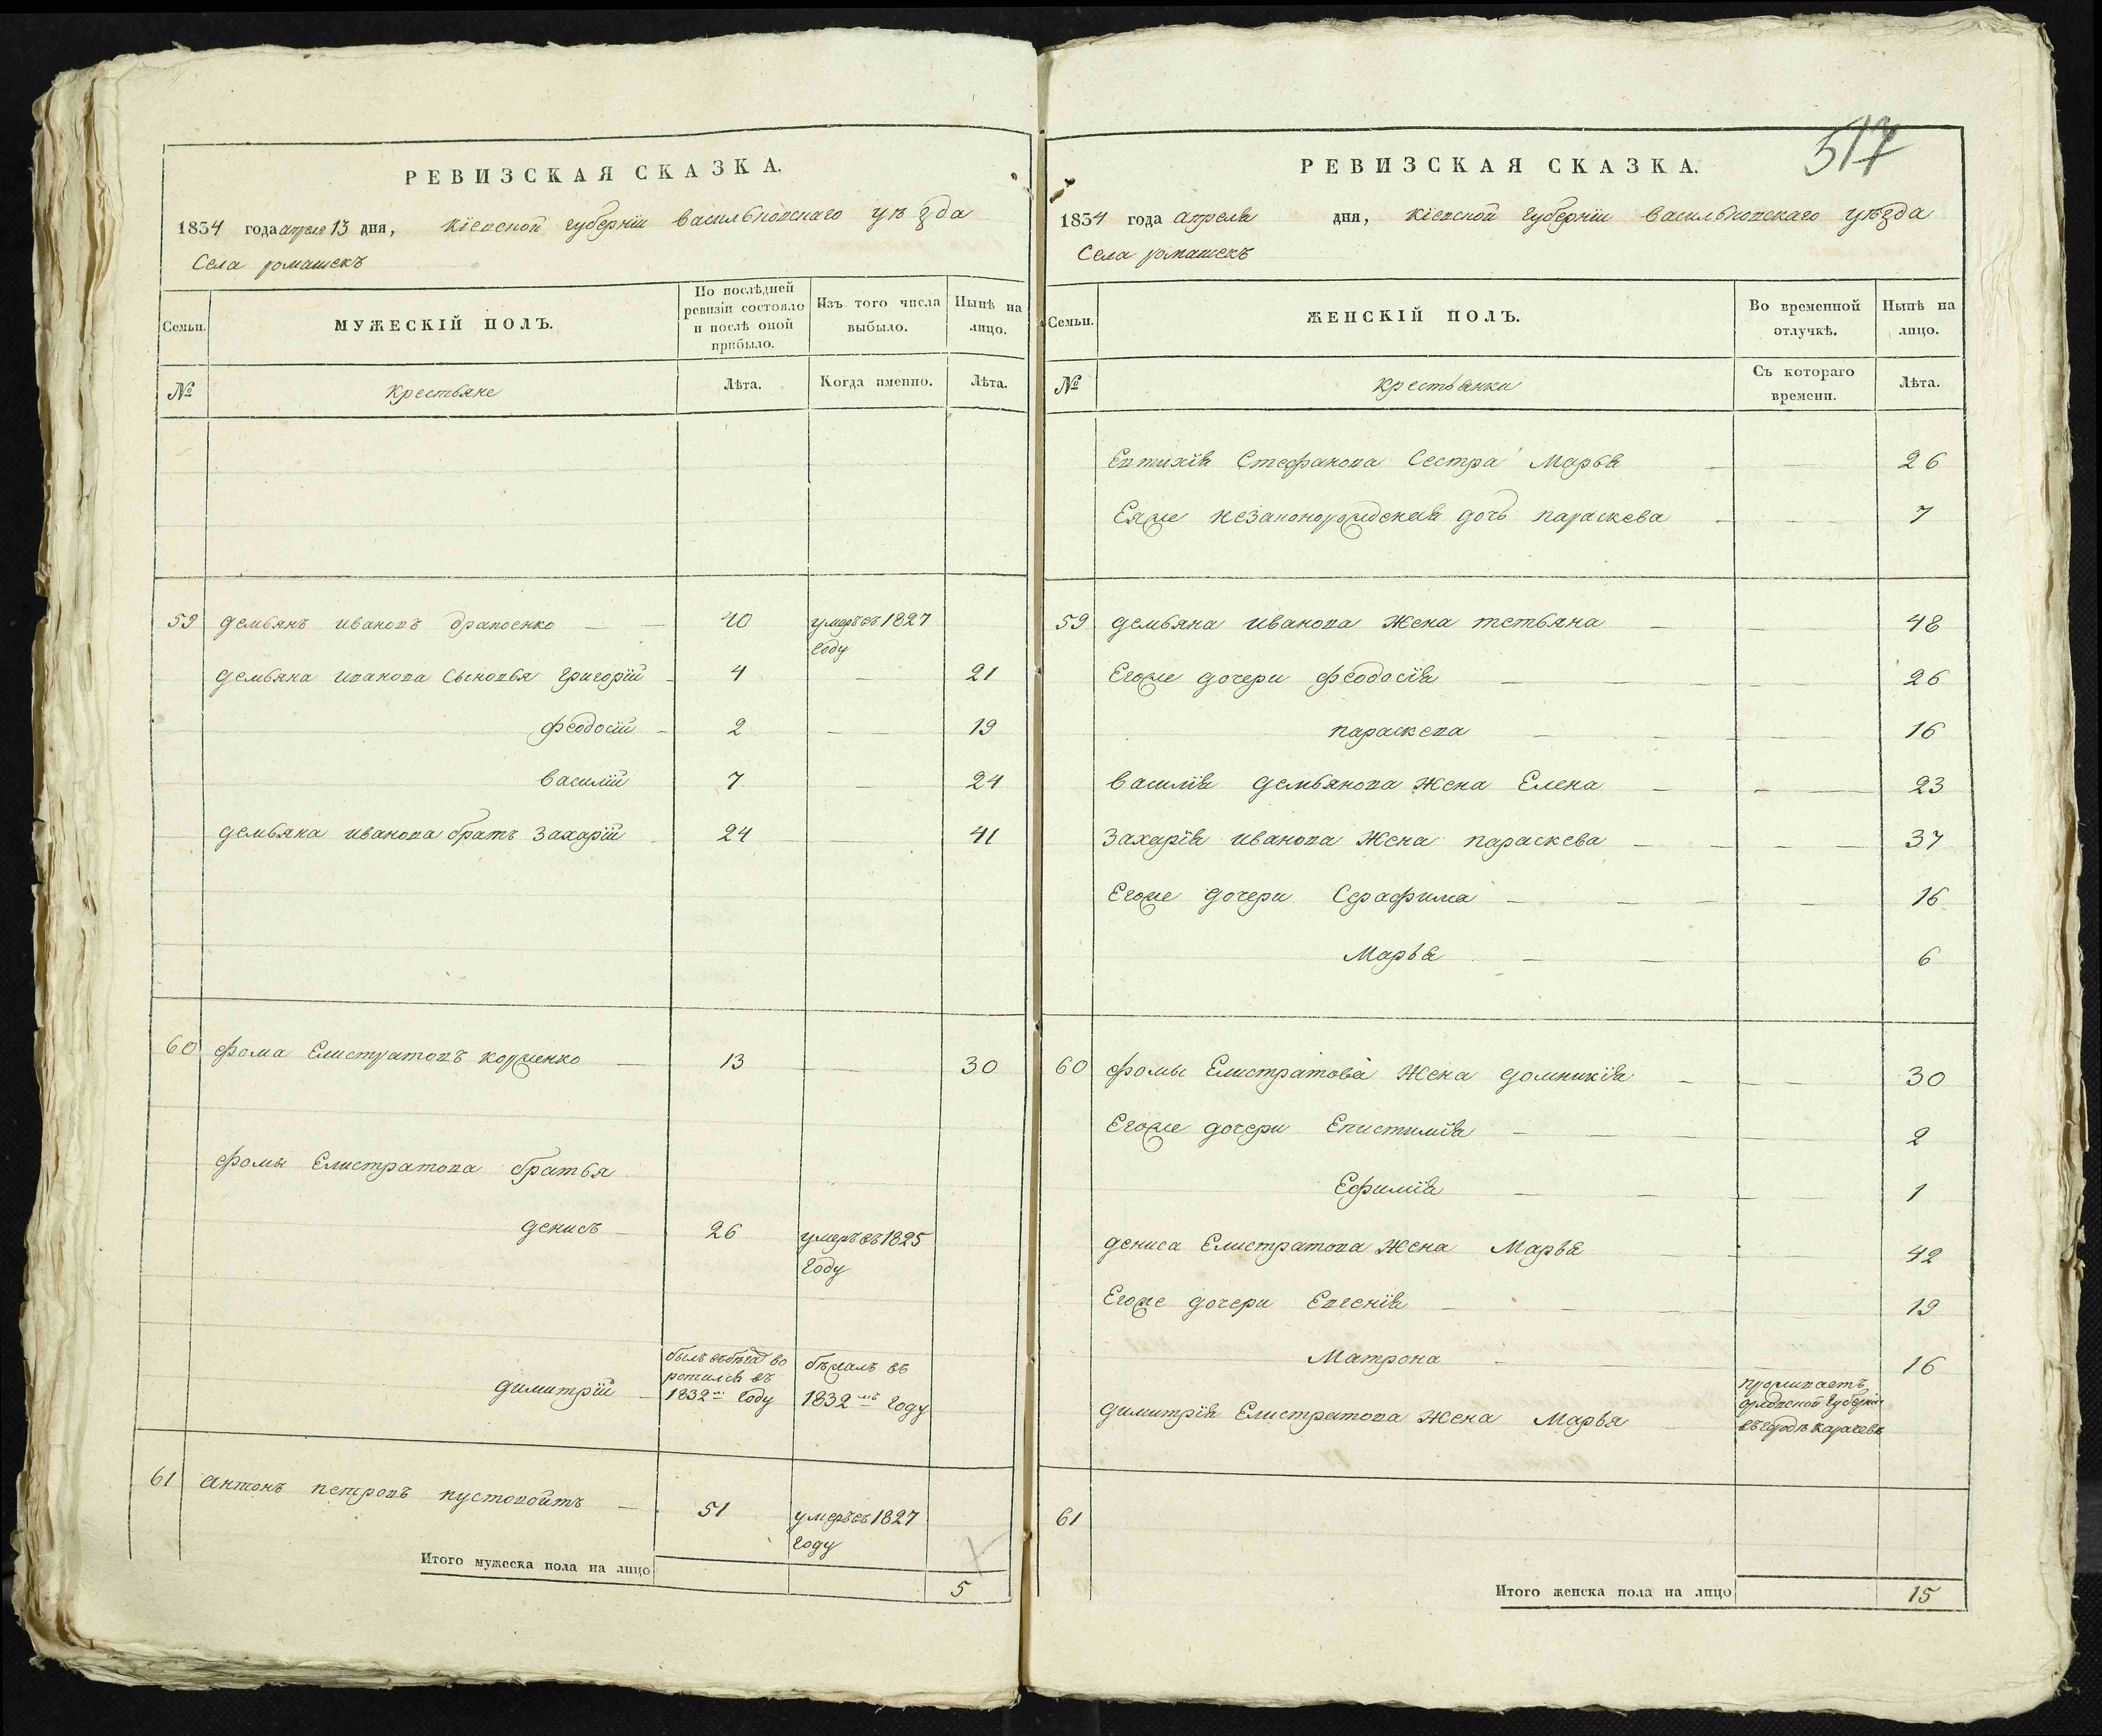 РЕВИЗСКАЯ СКАЗКА.
1834 года апреля 13 дня, кіевской губерніи васильковскаго уѣзда
Села ромашекъ
Семьи.
МУЖЕСКІЙ ПОЛЪ.
По послѣдней ревизіи состояло и послѣ оной прибыло.
Изъ того числа выбыло.
Нынѣ на лицо.
№
крестьяне
Лѣта.
Когда именно.
Лѣта.
59 демьянъ ивановъ 40 умеръ въ 1827 году
демьяна иванова сыновья григорій 4 21
феодосій 2 19
василій 7 24
демьяна иванова братъ захарій 24 41
60 фома Елистратовъ корженко 13 30
фомы Елистратова братья
денисъ 26 умеръ въ 1825 году
димитрій былъ въ бѣгахъ воротился въ 1832мъ году бѣжалъ въ 1832мъ году
61 антонъ петровъ пустовойтъ 51 умеръ въ 1827 году
Итого мужеска пола на лицо 5
517
РЕВИЗСКАЯ СКАЗКА.
1834 года апреля дня, кіевской губерніи васильковскаго уѣзда
Села ромашекъ
Семьи.
ЖЕНСКІЙ ПОЛЪ.
Во временной отлучкѣ.
Нынѣ на лицо.
№
крестьянки
Съ котораго времени.
Лѣта.
Евтихія Стефанова Сестра Марья 26
Еяже незаконорожденная дочь параскева 7
59 демьяна иванова жена тетьяна 48
Егоже дочери феодосія 26
параскева 16
василія демьянова жена Елена 23
захарія иванова жена параскева 37
Егоже дочери Серафима 16
Марья 6
60 фомы Елистратова жена домникія 30
Егоже дочери Епистимія 2
Ефимія 1
дениса Елистратова жена Марья 42
Егоже дочери Евгенія 19
Матрона 16
димитрія Елистратова жена Марья проживаетъ орловской губерніи въ городѣ карачевѣ
61
Итого женска пола на лицо 15